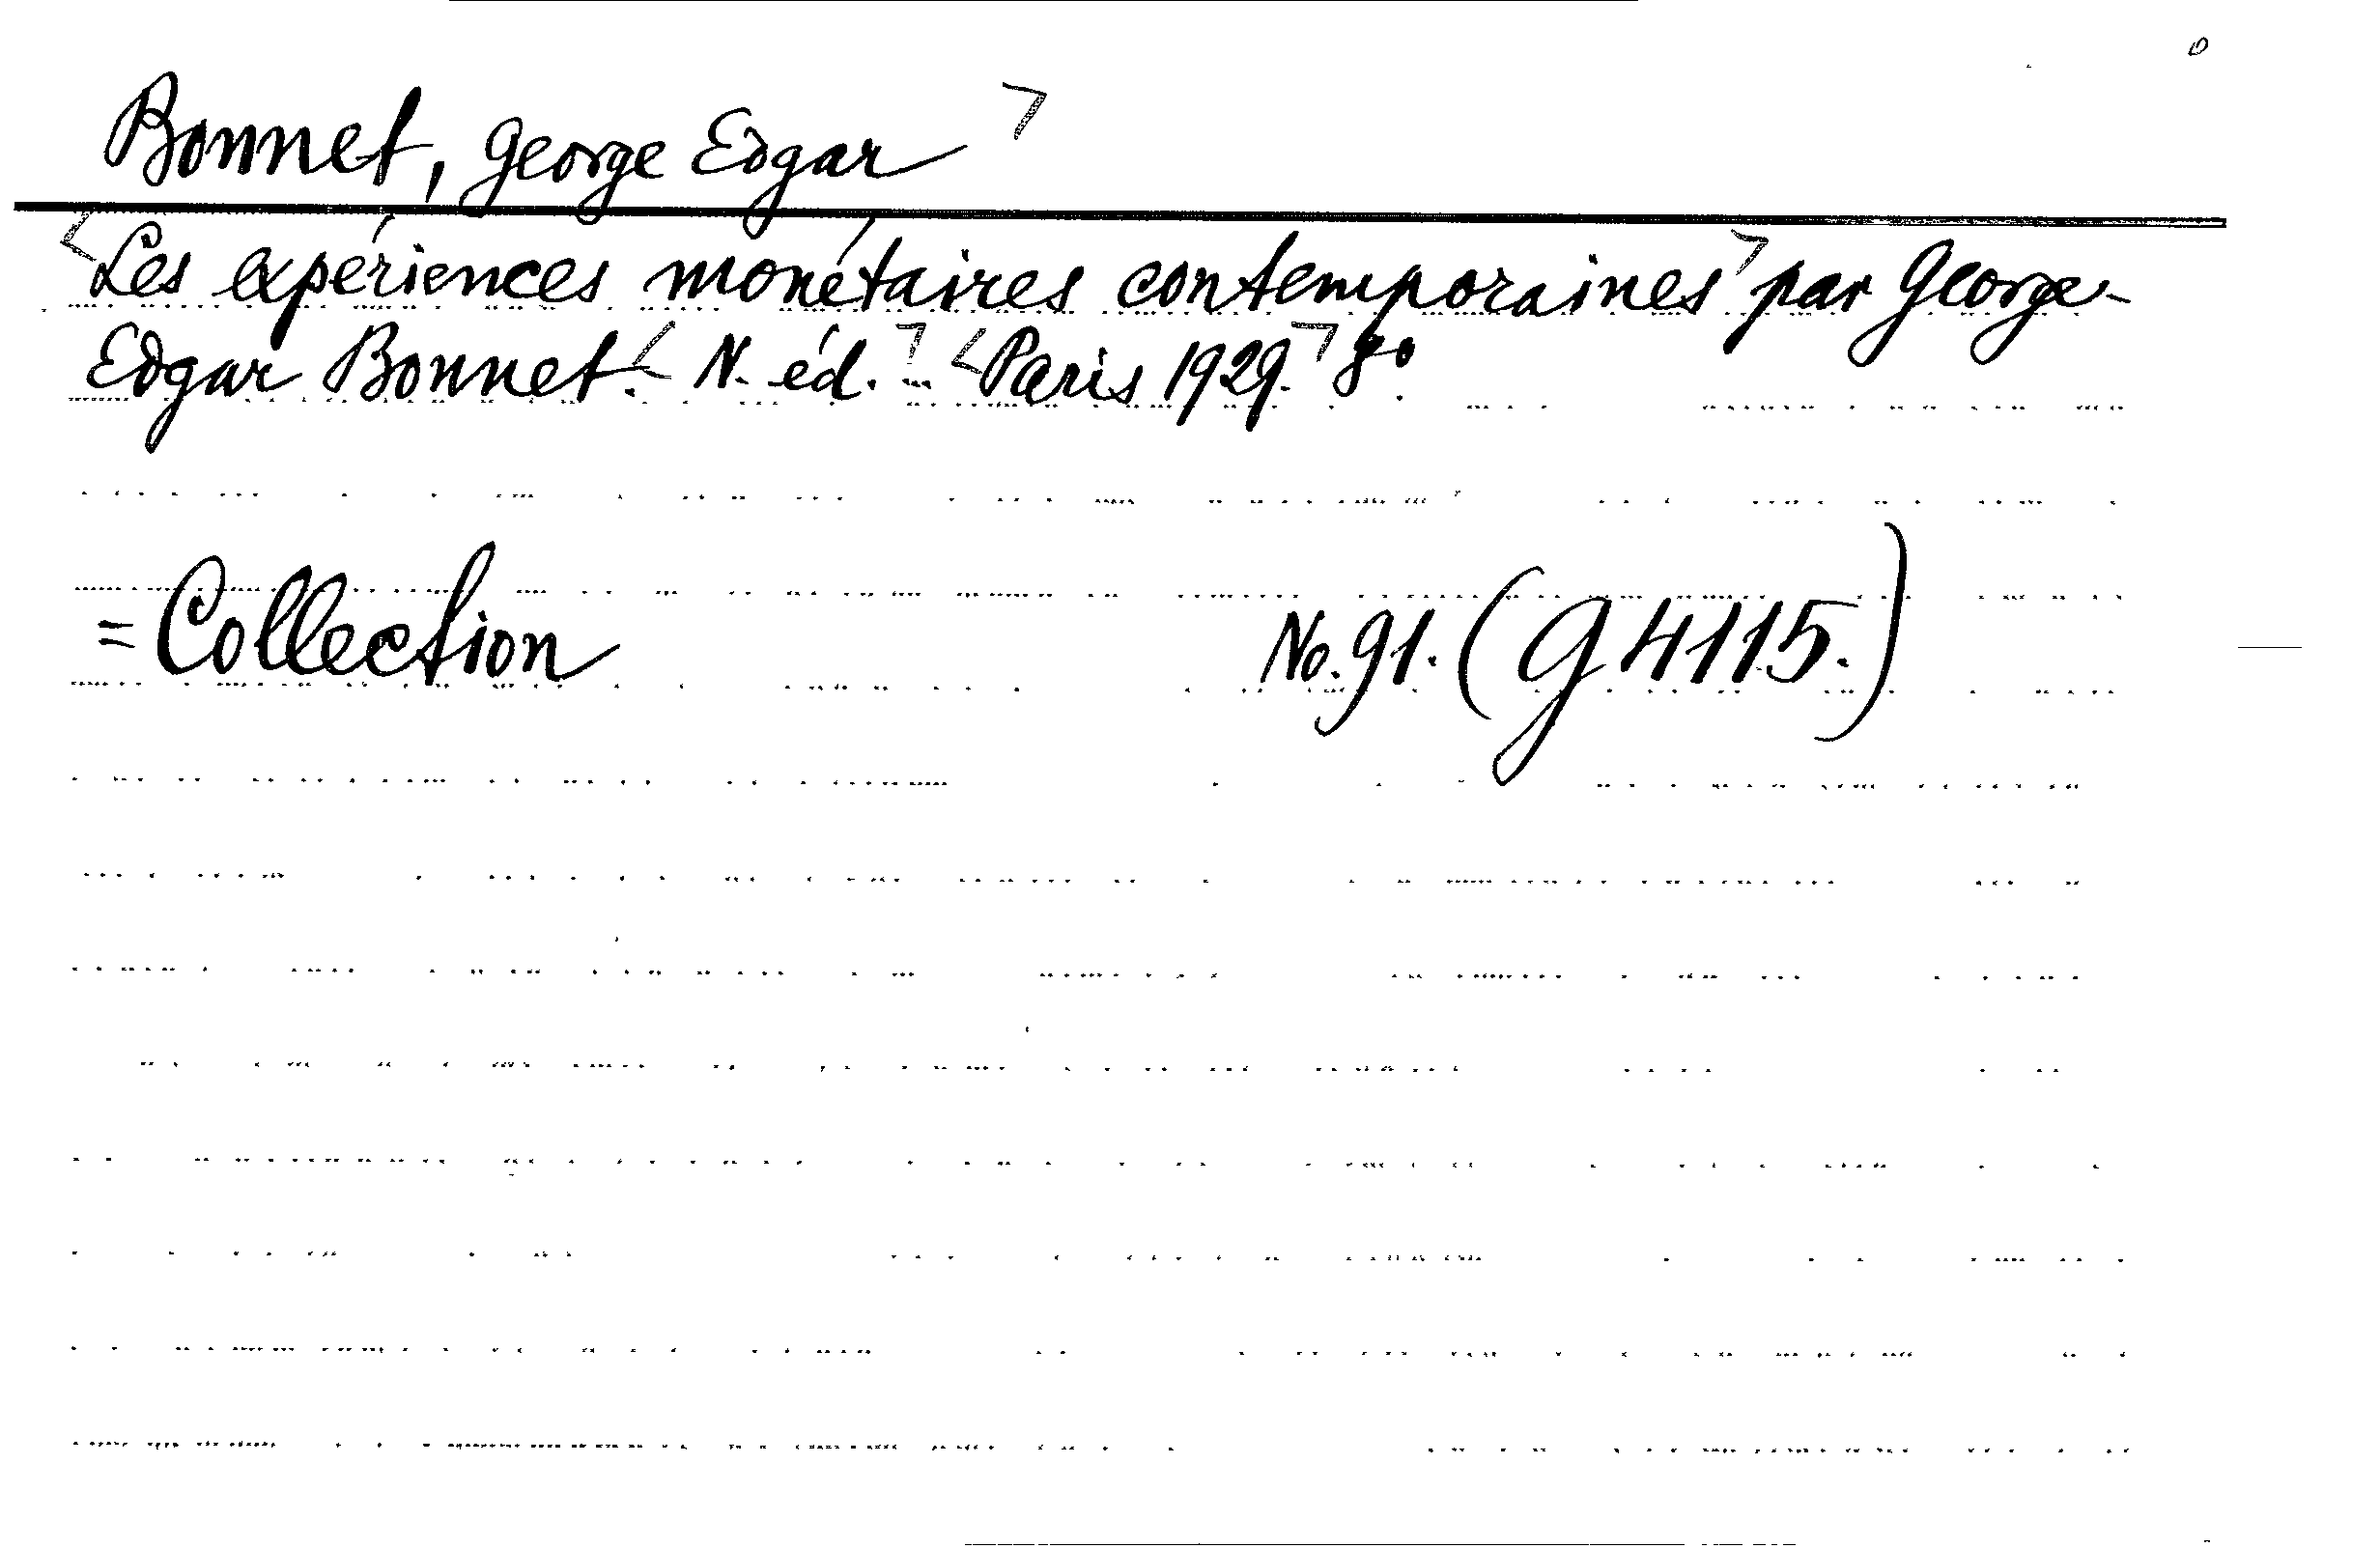 Bonnet, George Edgar
Les expériences monétaires contemporaines par George-
Edgar Bonnet. N. éd. ... Paris 1929. 8°.
= Collection No. 91. (G 4115.)